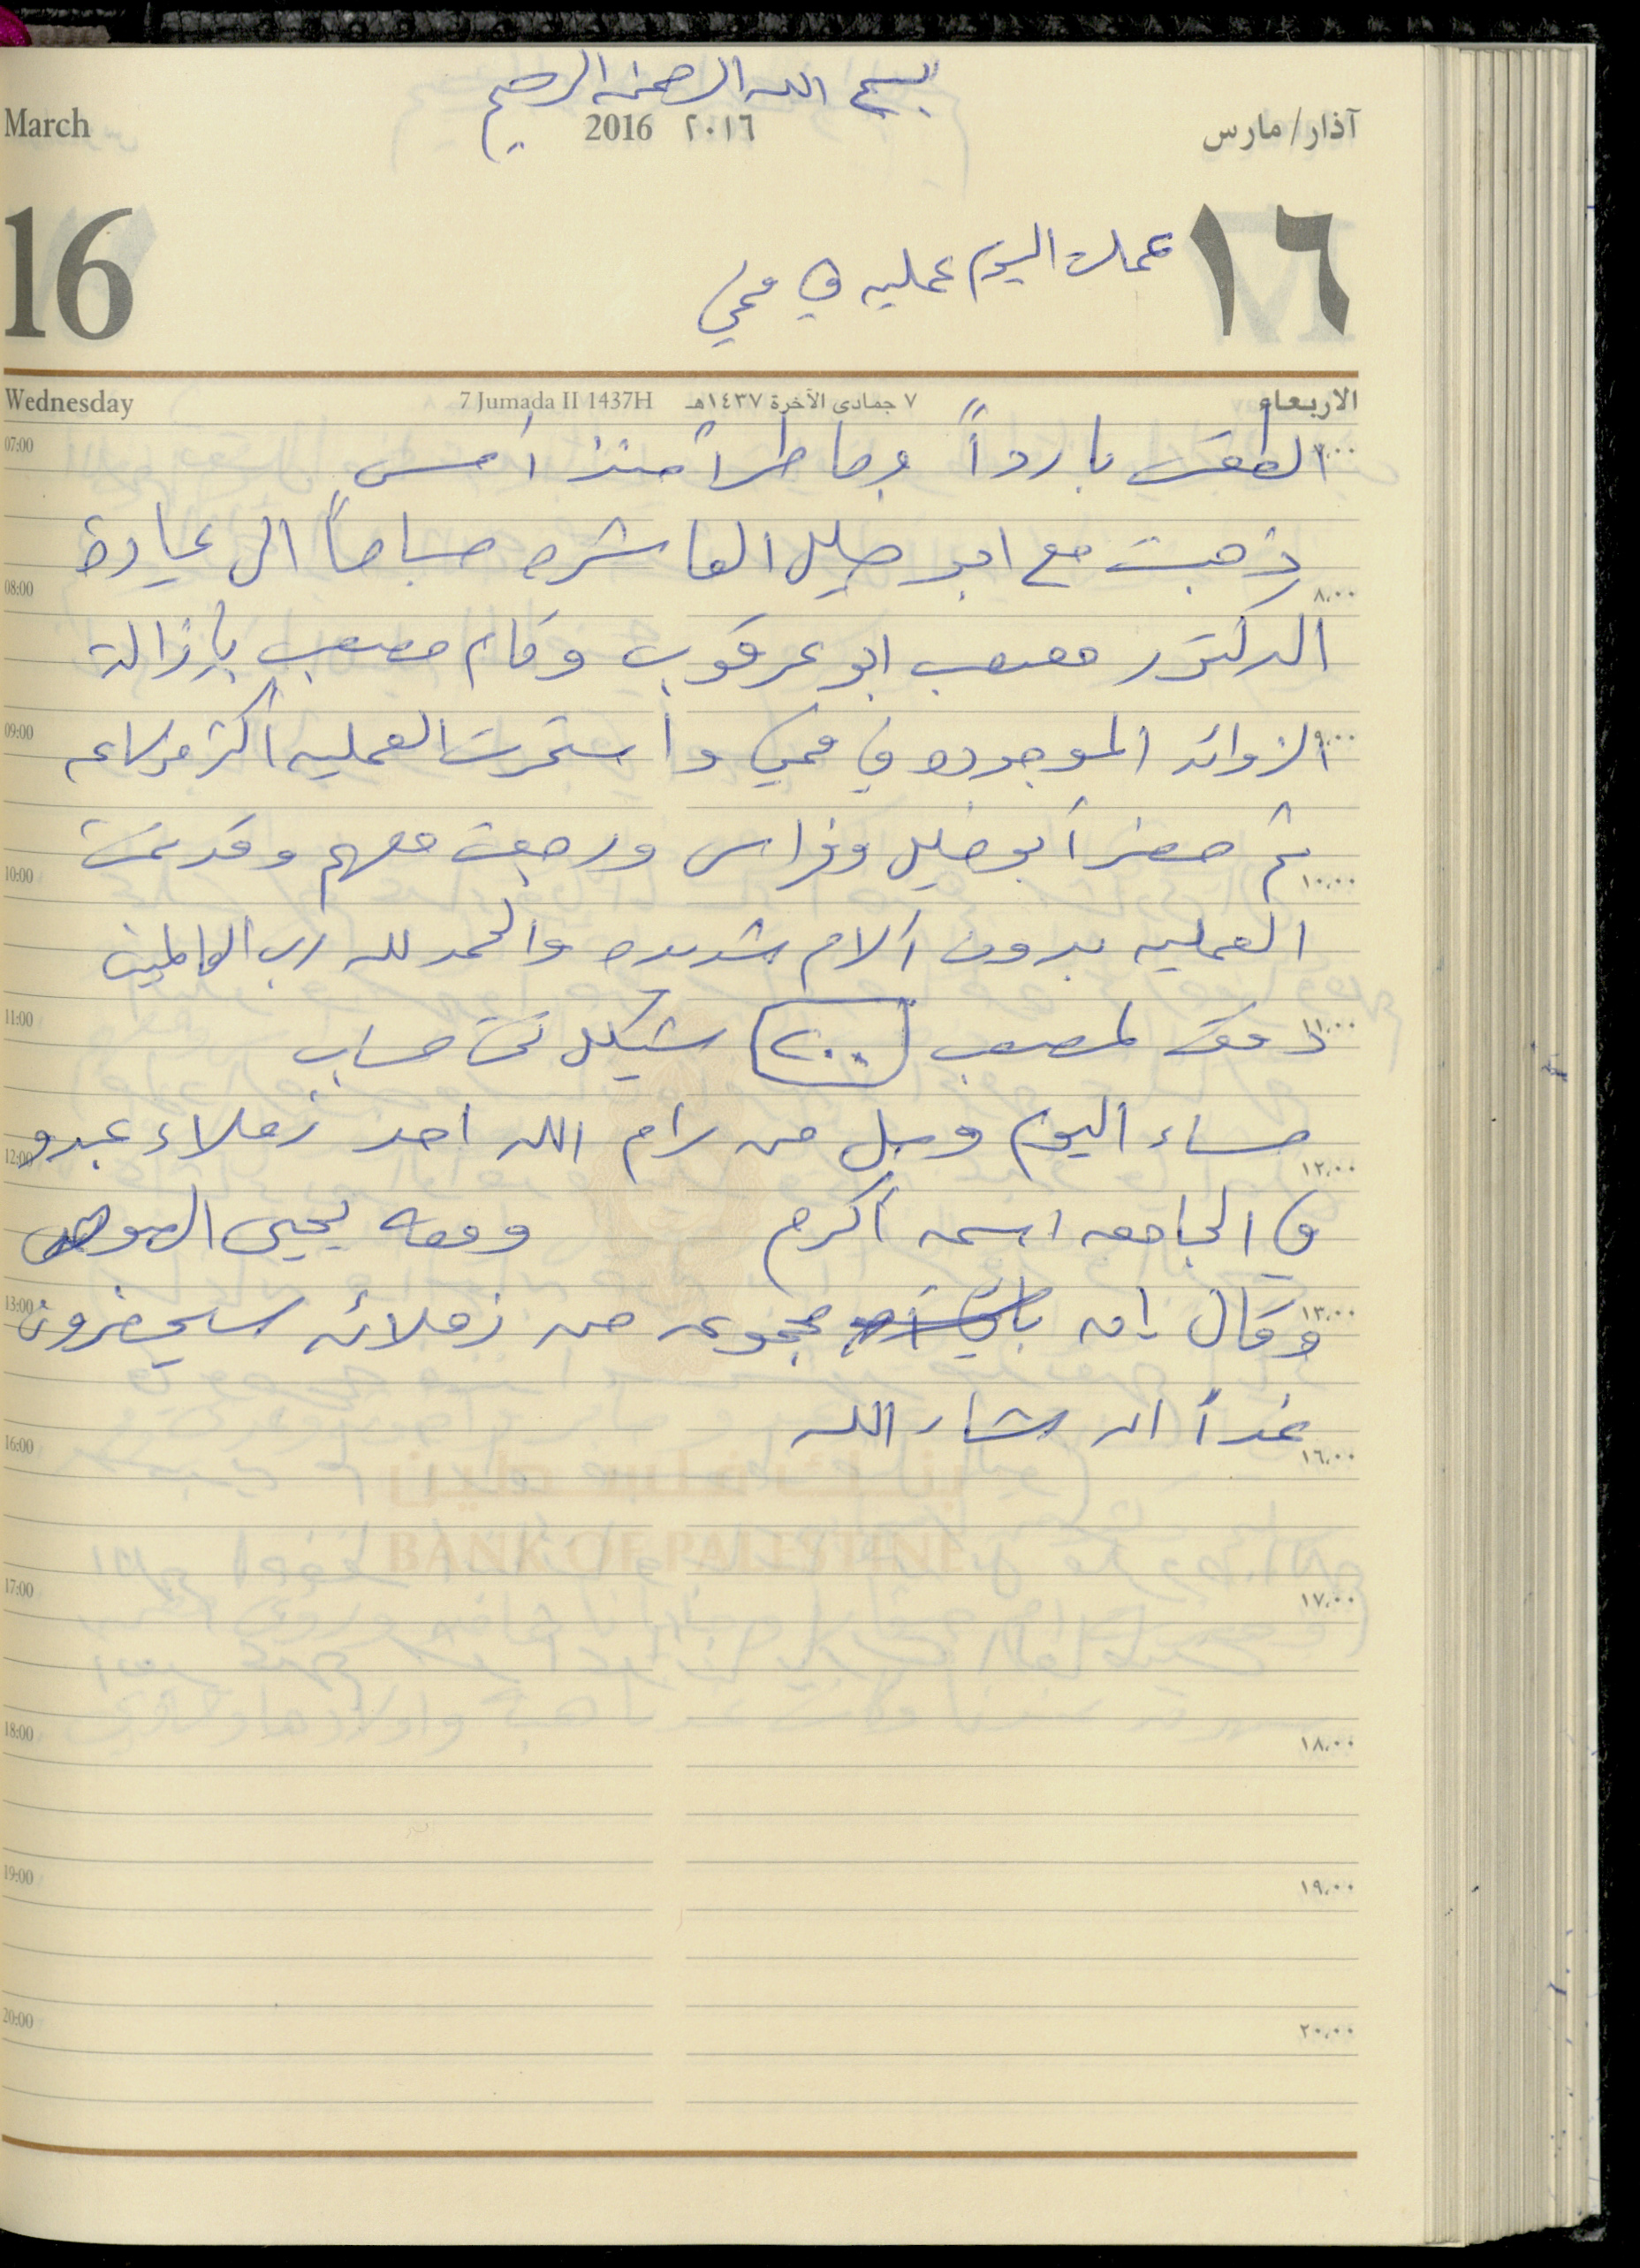 بسم الله الرحمن الرحيم
March 2016 ٢٠١٦ آذار/مارس
16 ١٦
عملت اليوم عمليه في فمي
Wednesday 7 Jumada II 1437H ٧ جمادى الآخرة ١٤٣٧هـ الاربعاء
07:00 ٧،٠٠
الطقس بارداً وماطراً منذ أمس
ذهبت مع ابو خليل العاشره صباحاً الى عيادة
08:00 ٨،٠٠
الدكتور مصعب ابو عرقوب وقام مصعب بإزالة
09:00 ٩،٠٠
الزوائد الموجوده في فمي واستمرت العمليه أكثر من ساعه
ثم حضر أبو خليل وفراس ورجعت معهم وقد تمت
10:00 ١٠،٠٠
العمليه بدون آلام شديده والحمد لله رب العالمين
11:00 ١١،٠٠
دفعت لمصعب ٢٠٠ شيكل تحت حساب
مساء اليوم وصل من رام الله احد زملاء عبدو
12:00 ١٢،٠٠
في الجامعه اسمه أكرم ومعه يحيى
13:00 ١٣،٠٠
وقال إن مجموعه من زملائه سيحضرون
غداً ان شاء الله
16:00 ١٦،٠٠
بنك فلسطين
BANK OF PALESTINE
17:00 ١٧،٠٠
18:00 ١٨،٠٠
19:00 ١٩،٠٠
20:00 ٢٠،٠٠